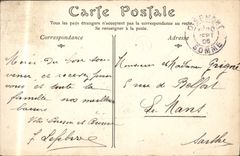 Carte Postale
Tous les pays étrangers n'acceptent pas la correspondance au recto.
Se renseigner à la poste
Correspondance
Adresse
SOMME
Merci de bon sou-
venir et recevez pour
vous et toute la
famille nos meilleurs
baisers
Lefebvre
Monsieur et Madame
5 rue de Belfort
Le Mans
Sarthe